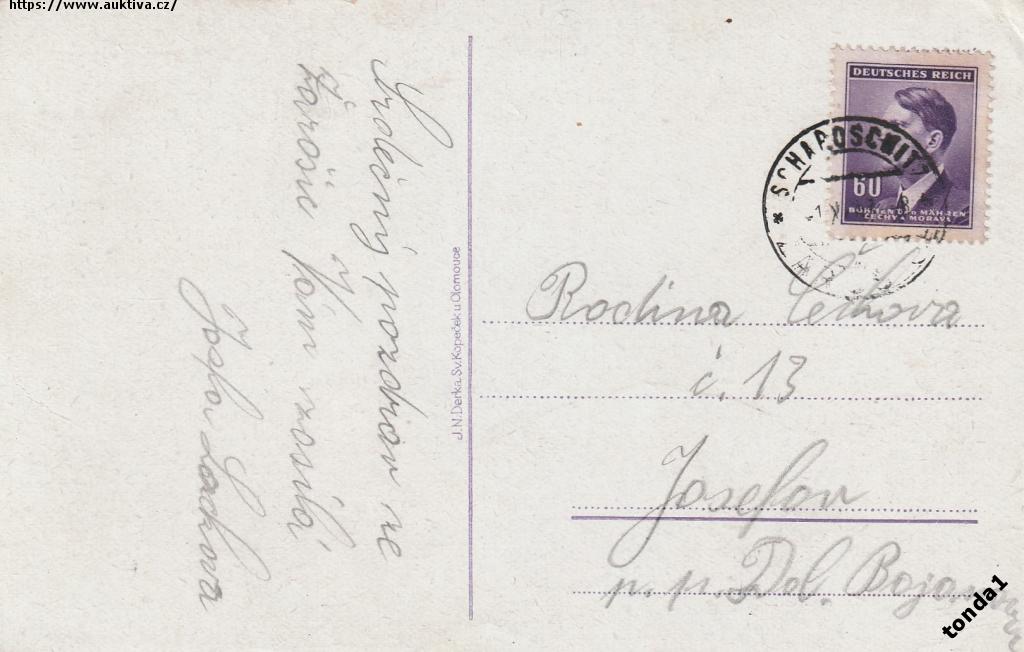 https://www.auktiva.cz/
Srdečný pozdrav ze
Žarošic Vám zasílá
J.N.Derka. Sv.Kopeček u Olomouce
DEUTSCHES REICH
60
BÖHMEN UND MÄHREN
ČECHY A MORAVA
* SCHAROSCHITZ
Rodina
č. 13
Josefov
p. p. Dol.
tonda1